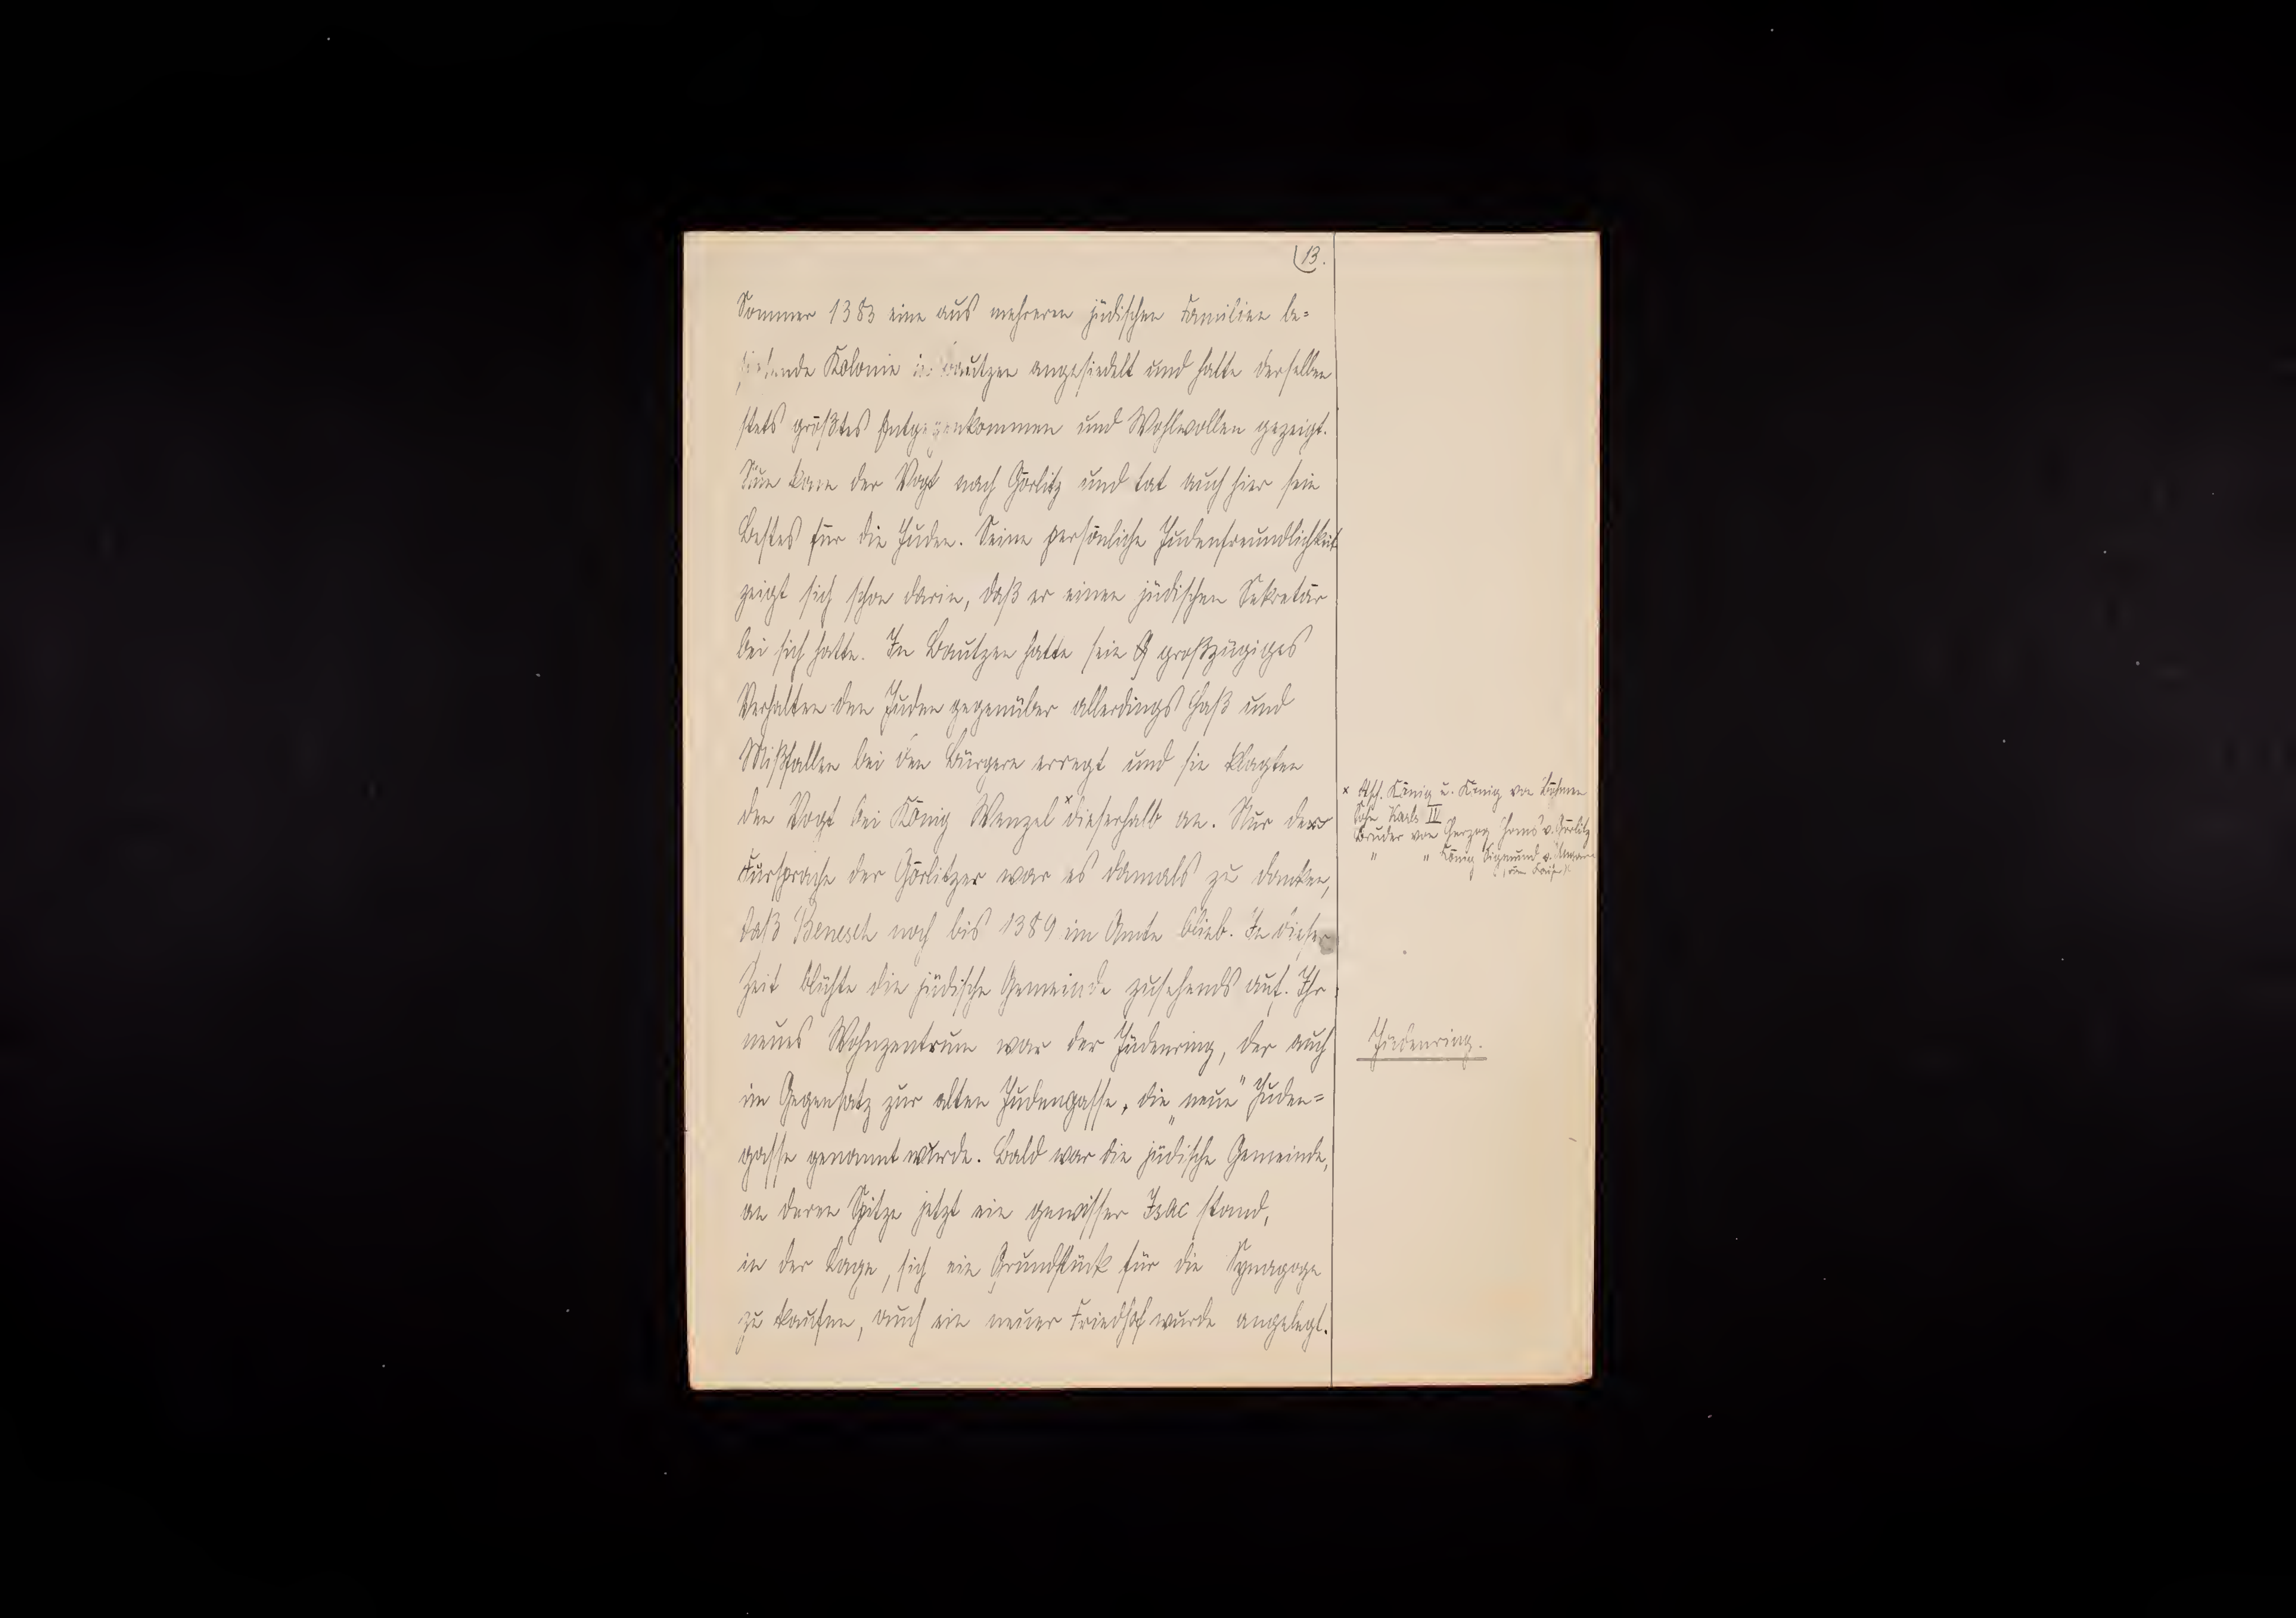 13.
Sommer 1383 eine aus mehreren jüdischen Familien be=
stehende Kolonie in Bautzen angesiedelt und hatte derselben
stets größtes Entgegenkommen und Wohlwollen gezeigt.
Nun kam der Vogt nach Görlitz und tat auch hier sein
Bestes für die Juden. Seine persönliche Judenfreundlichkeit
zeigt sich schon darin, daß er einen jüdischen Sekretär
bei sich hatte. In Bautzen hatte sein großzügiges
Verhalten den Juden gegenüber allerdings Haß und
Mißfallen bei den Bürgern erregt und sie klagten
den Vogt bei König Wenzel x dieserhalb an. Nur der
Fürsprache der Görlitzer war es damals zu danken,
daß Benesch noch bis 1389 im Amte blieb. In dieser
Zeit blühte die jüdische Gemeinde zusehends auf. Ihr
neues Wohnzentrum war der Judenring, der auch
im Gegensatz zur alten Judengasse, die „neue" Juden=
gasse genannt wurde. Bald war die jüdische Gemeinde,
an deren Spitze jetzt ein gewisser Isac stand,
in der Lage, sich ein Grundstück für die Synagoge
zu kaufen, auch ein neuer Friedhof wurde angelegt.
x König u. König von Böhmen
Sohn Karls IV
Bruder von Herzog Hans v. Görlitz
" " König Sigmund v. Ungarn
Judenring.